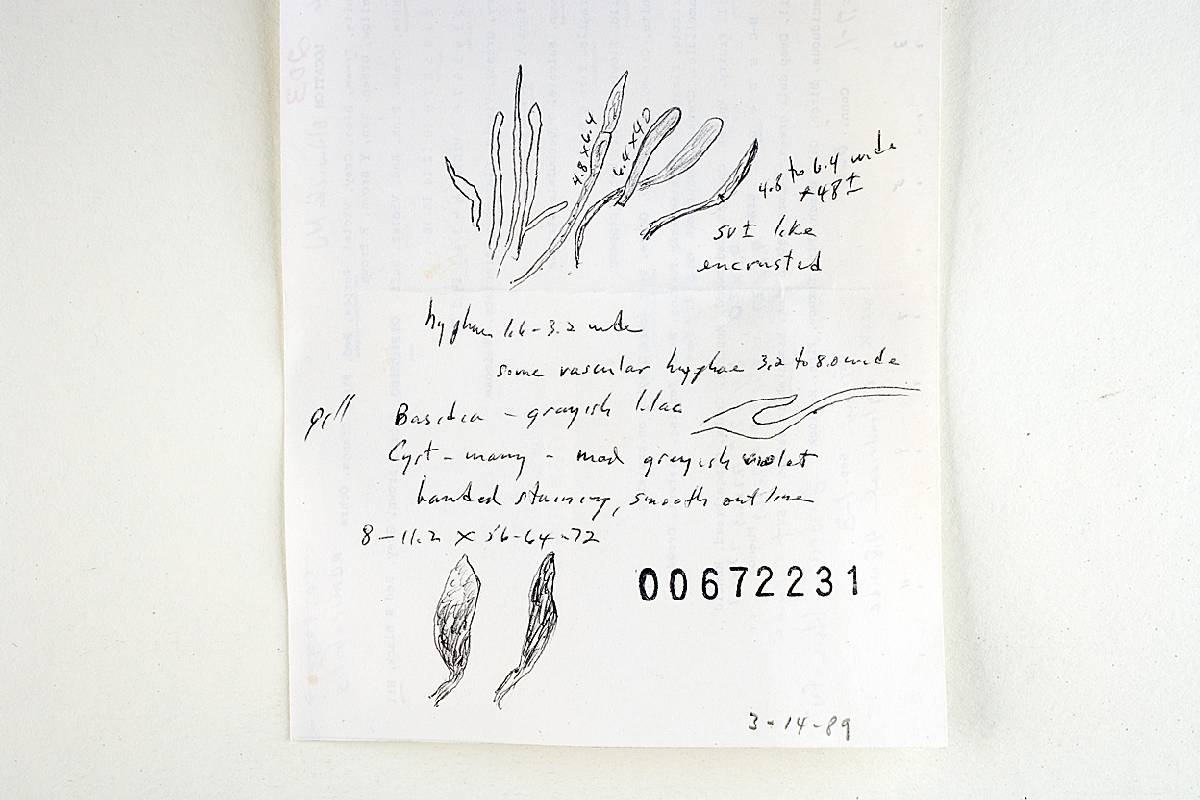 4.8 x 6.4
6.4 x 40
4.8 to 6.4 wide
x 48 ±
sv ± like
encrusted
hyphae 1.6-3.2 wide
some vascular hyphae 3.2 to 8.0 wide
gill Basidia - grayish lilac
Cyst - many - med grayish violet
banded staining, smooth outline
8-11.2 x 56-64-72
00672231
3-14-89